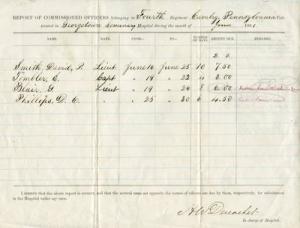 REPORT OF COMMISSIONED OFFICERS belonging to Fourth Regiment Cavalry Pennsylvania Vols
treated in Georgetown Seminary Hospital during the month of June 186
NAME. RANK. FROM TO
Smith David, R. Lieut June 14 June 25 10 7.50
Timbler, C. Capt " 19 " 22 4 3.00
Blair, G Lieut " 19 " 24 8 6.00
Phillips, D. C. " 25 " 30 6 4.50
I CERTIFY that the above report is correct, and that the several sums set opposite the names of officers are due by them, respectively, for subsistence
in the Hospital under my care.
In charge of Hospital.